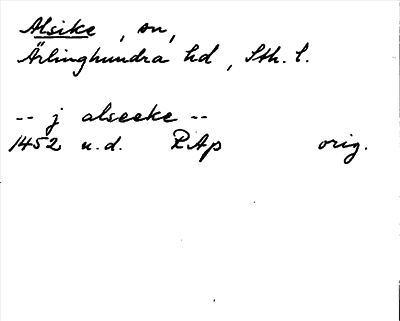 Alsike, sn,
Ärlinghundra hd, Sth. l.
-- j alseeke --
1452 u.d. RAp orig.